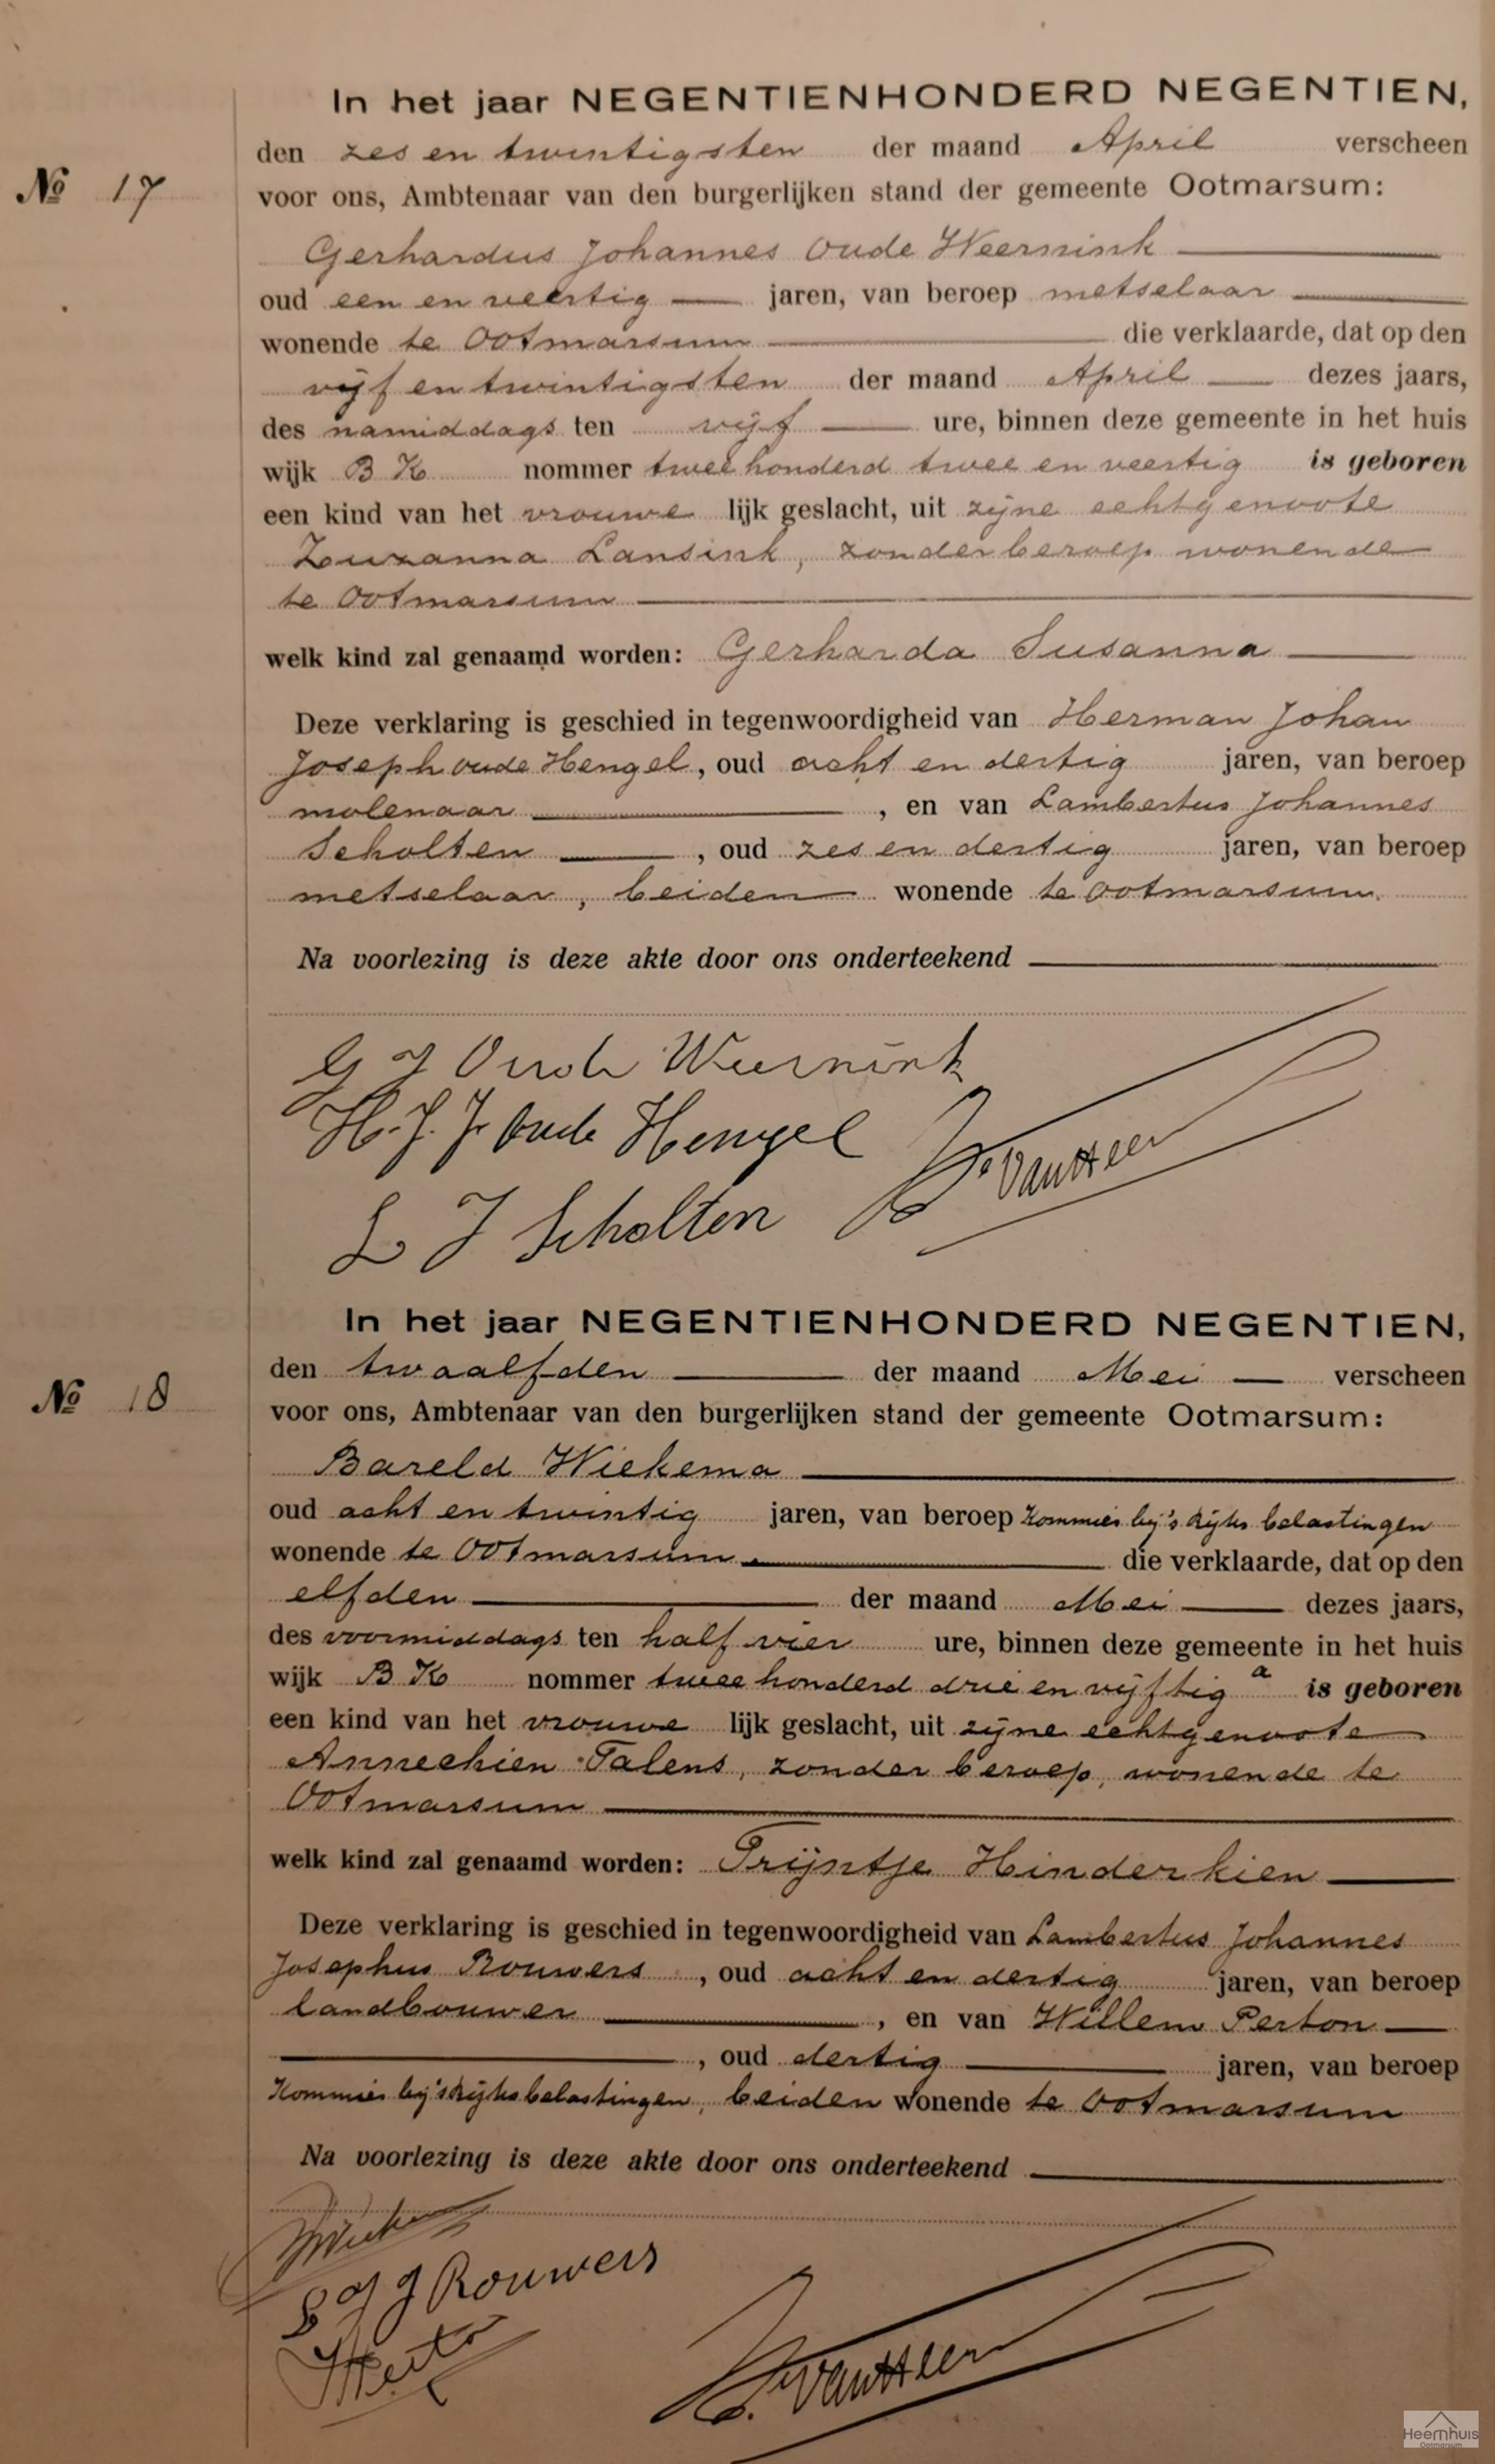 In het jaar NEGENTIENHONDERD NEGENTIEN,
den zes en twintigsten der maand April verscheen
№ 17
voor ons, Ambtenaar van den burgerlijken stand der gemeente Ootmarsum:
Gerhardus Johannes Oude Weernink
oud een en veertig jaren, van beroep metselaar
wonende te Ootmarsum die verklaarde, dat op den
vijf en twintigsten der maand April dezes jaars,
des namiddags ten vijf ure, binnen deze gemeente in het huis
wijk B K nommer twee honderd twee en veertig is geboren
een kind van het vrouwe lijk geslacht, uit zijne echtgenoote
Zuzanna Lansink, zonder beroep wonende
te Ootmarsum
welk kind zal genaamd worden: Gerharda Susanna
Deze verklaring is geschied in tegenwoordigheid van Herman Johan
Joseph oude Hengel, oud acht en dertig jaren, van beroep
molenaar, en van Lambertus Johannes
Scholten, oud zes en dertig jaren, van beroep
metselaar, beiden wonende te Ootmarsum.
Na voorlezing is deze akte door ons onderteekend
G J Oude Weernink
H. J. J. Oude Hengel
L J Scholten
In het jaar NEGENTIENHONDERD NEGENTIEN,
den twaalfden der maand Mei verscheen
№ 18
voor ons, Ambtenaar van den burgerlijken stand der gemeente Ootmarsum:
Bareld Wiekema
oud acht en twintig jaren, van beroep Kommies bij 's Rijks belastingen
wonende te Ootmarsum die verklaarde, dat op den
elfden der maand Mei dezes jaars,
des voormiddags ten half vier ure, binnen deze gemeente in het huis
wijk B K nommer twee honderd drie en vijftig a is geboren
een kind van het vrouwe lijk geslacht, uit zijne echtgenoote
Annechien Talens, zonder beroep, wonende te
Ootmarsum
welk kind zal genaamd worden: Trijntje Hinderkien
Deze verklaring is geschied in tegenwoordigheid van Lambertus Johannes
Josephus Rouwers, oud acht en dertig jaren, van beroep
landbouwer, en van Willem Perton
, oud dertig jaren, van beroep
Kommies bij 's Rijks belastingen, beiden wonende te Ootmarsum
Na voorlezing is deze akte door ons onderteekend
L J J Rouwers
Heemhuis
Ootmarsum